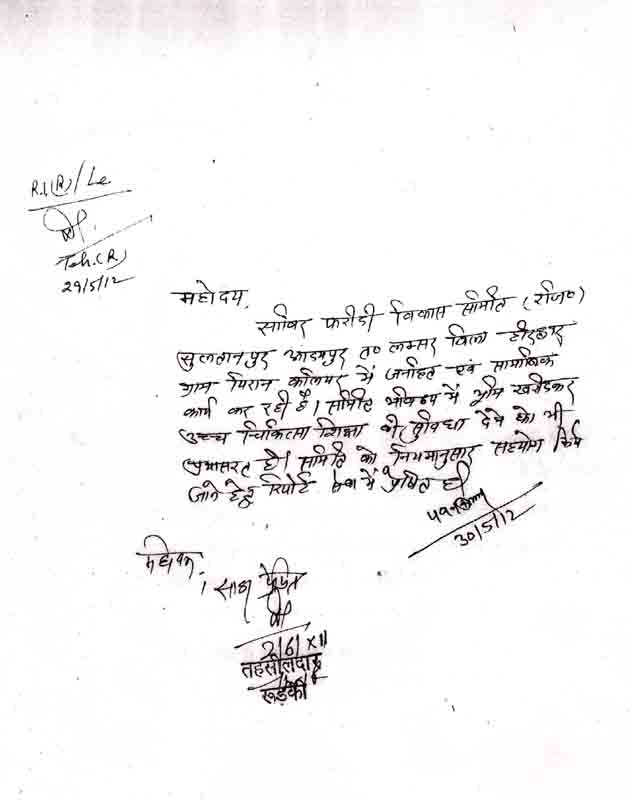 R.I.(R)/Le
Teh.(R)
29/5/12
महोदय,
साबिर फरीदी विकास समिति (रजि०)
सुलतानपुर आदमपुर त० लक्सर जिला हरिद्वार
ग्राम पिरान कलियर में जनहित एवं सामाजिक
कार्य कर रही है। समिति भविष्य में भूमि खरीदकर
उच्च चिकित्सा शिक्षा की सुविधा देने को भी
प्रयासरत है। समिति को नियमानुसार सहयोग किये
जाने हेतु रिपोर्ट सेवा में प्रेषित है
30/5/12
महोदय,
सादर प्रेषित
2/6/XII
तहसीलदार
रूड़की